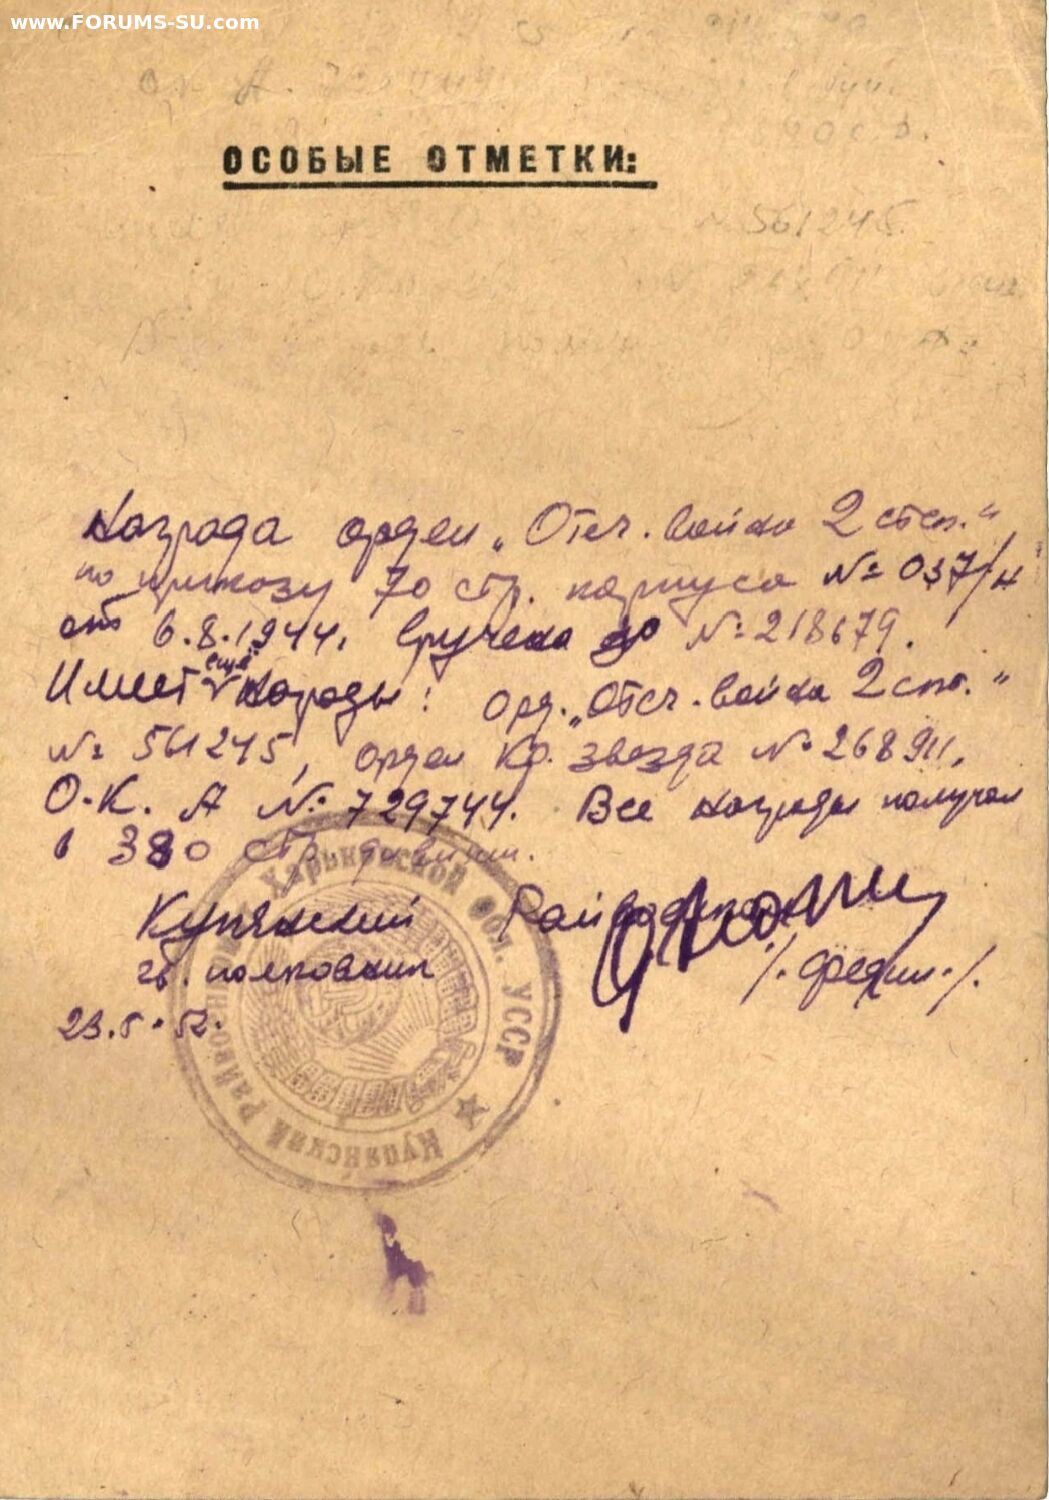 www.FORUMS-SU.com
561245
ОСОБЫЕ ОТМЕТКИ:
Награда орден „Отеч. война 2 степ."
по приказу 70 стр. корпуса № 037/н
от 6.8.1944, вручена до № 218679.
Имеет ещё награды: орд. „Отеч. война 2 степ."
№ 561245, орден Кр. звезда № 268911,
О.К. А № 729744. Все награды получал
в 380 стр. дивизии.
Купянский Райвоенком
гв. полковник /. Федин ./.
23.5.52.
Купянский Райвоен Харьковской Обл. УССР